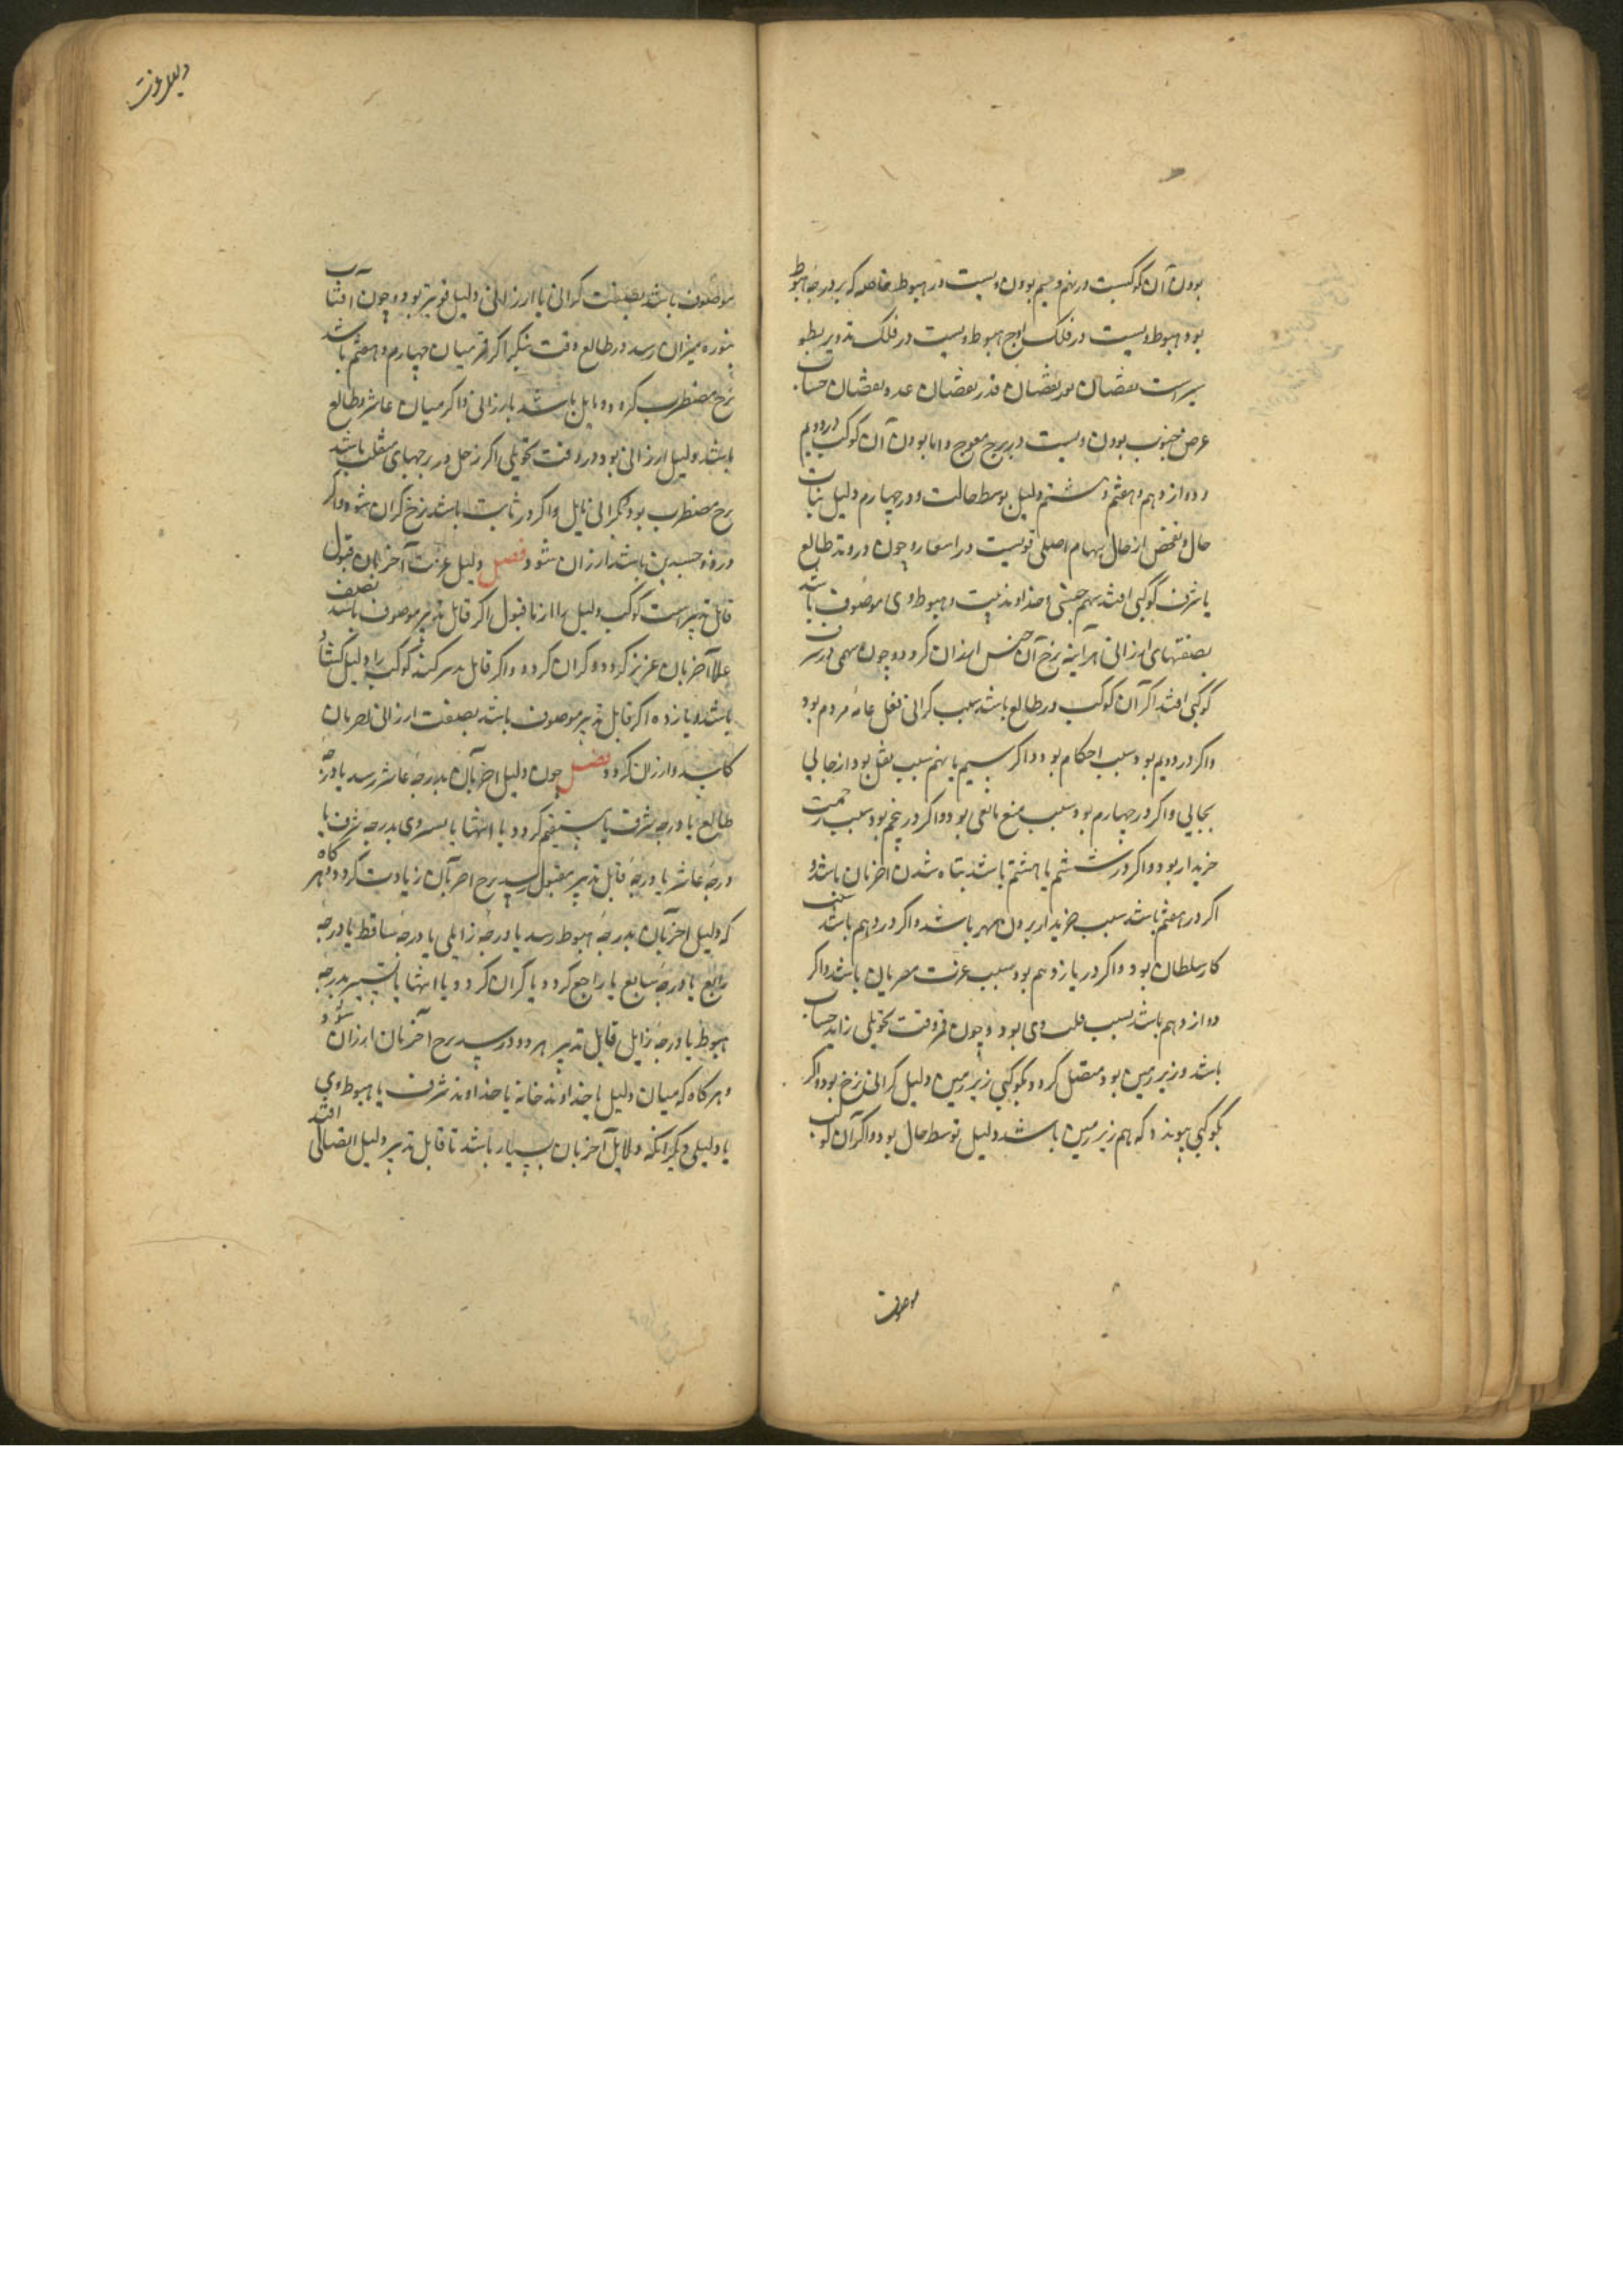 بودن آن کوکبست در نهم و سیم بودن و بیست در هبوط خاصه که بر درجه هبوط
بود هبوط و بیست در فلک اوج هبوط و بیست در فلک تدویر بطو
سیرست نقصان نور نقصان قدر نقصان عدد نقصان حساب
عرض جنوب بودن و بیست در برج معوج و اما بودن آن کوکب در دویم
و دوازدهم و هفتم و هشتم دلیل توسط حالت و در چهارم دلیل ثبات
حال و تفحص از حال سهام اصلی قویست در اسعار و چون در وتد طالع
یا شرف کوکبی افتد سهم جنسی و خداوند بیت و هبوط وی موصوف باشد
بصفتهای ارزانی هر آینه نرخ آن جنس ارزان کردد و چون سهمی در شرف
کوکبی افتد اکر آن کوکب در طالع باشد سبب کرانی فعل عامه مردم بود
و اکر در دویم بود سبب احکام بود و اکر سیم یا نهم سبب نقل بود از جایی
بجایی و اکر در چهارم بود سبب منع بایعی بود و اکر در پنجم بود سبب رحمت
خریدار بود و اکر در ششم یا هشتم باشد تباه شدن اخریان باشد و
اکر در هفتم باشد سبب خریدار برون شهر باشد و اکر در دهم باشد سبب
کار سلطان بود و اکر در یازدهم بود سبب عزت اخریان باشد و اکر
دوازدهم باشد بسبب قلت وی بود و چون قمر وقت تحویل زاید حساب
باشد و زیر زمین بود متصل کردد بکوکبی زیر زمین دلیل کرانی نرخ بود و اکر
بکوکبی پیوندد که هم زیر زمین باشد دلیل توسط حال بود و اکر آن کوکب
موصوف
موصوف باشد بصفت کرانی یا ارزانی دلیل قوی‌تر بود و چون آفتاب
بنوزده میزان رسد در طالع وقت بنکر اکر قمر میان چهارم و هفتم باشد
نرخ مضطرب کردد و مایل باشد بارزانی و اکر میان عاشر و طالع
باشد دلیل ارزانی بود و در وقت تحویل اکر زحل در برجهای منقلب باشد
نرخ مضطرب بود بکرانی مایل و اکر در ثابت باشد نرخ کران شود و اکر
در ذو جسدین باشد ارزان شود فصل دلیل عزت آخریان قبول
قابل تدبیرست کوکب دلیل را از نا قبول اکر قابل تدبیر موصوف باشد بصفت
علا آخریان عزیز کردد و کران کردد و اکر قابل تدبیر کند کوکب را دلیل کشاد
باشد و یازده اکر قابل تدبیر موصوف باشد بصفت ارزانی اخریان
کاسد و ارزان کردد فصل چون دلیل اخریان بدرجه عاشر رسد یا درجه
طالع یا درجه شرف یا مستقیم کردد یا انتها یا بسر وی بدرجه شرف یا
درجه عاشر یا درجه قابل تدبیر مقبول رسد نرخ اخریان زیادت کردد و هر کاه
که دلیل اخریان بدرجه هبوط رسد یا درجه زایلی یا درجه ساقط یا درجه
رابع یا درجه سابع یا راجع کردد یا کران کردد یا انتها یا تسییر بدرجه
هبوط یا درجه زایل قابل تدبیر هر دو در رسد نرخ آخریان ارزان شود و
و هر کاه که میان دلیل با خداوند خانه یا خداوند شرف یا هبوط وی
یا دلیلی دیکر آنکه دلایل آخریان بسیار باشد تا قابل تدبیر دلیل اتصالی افتد